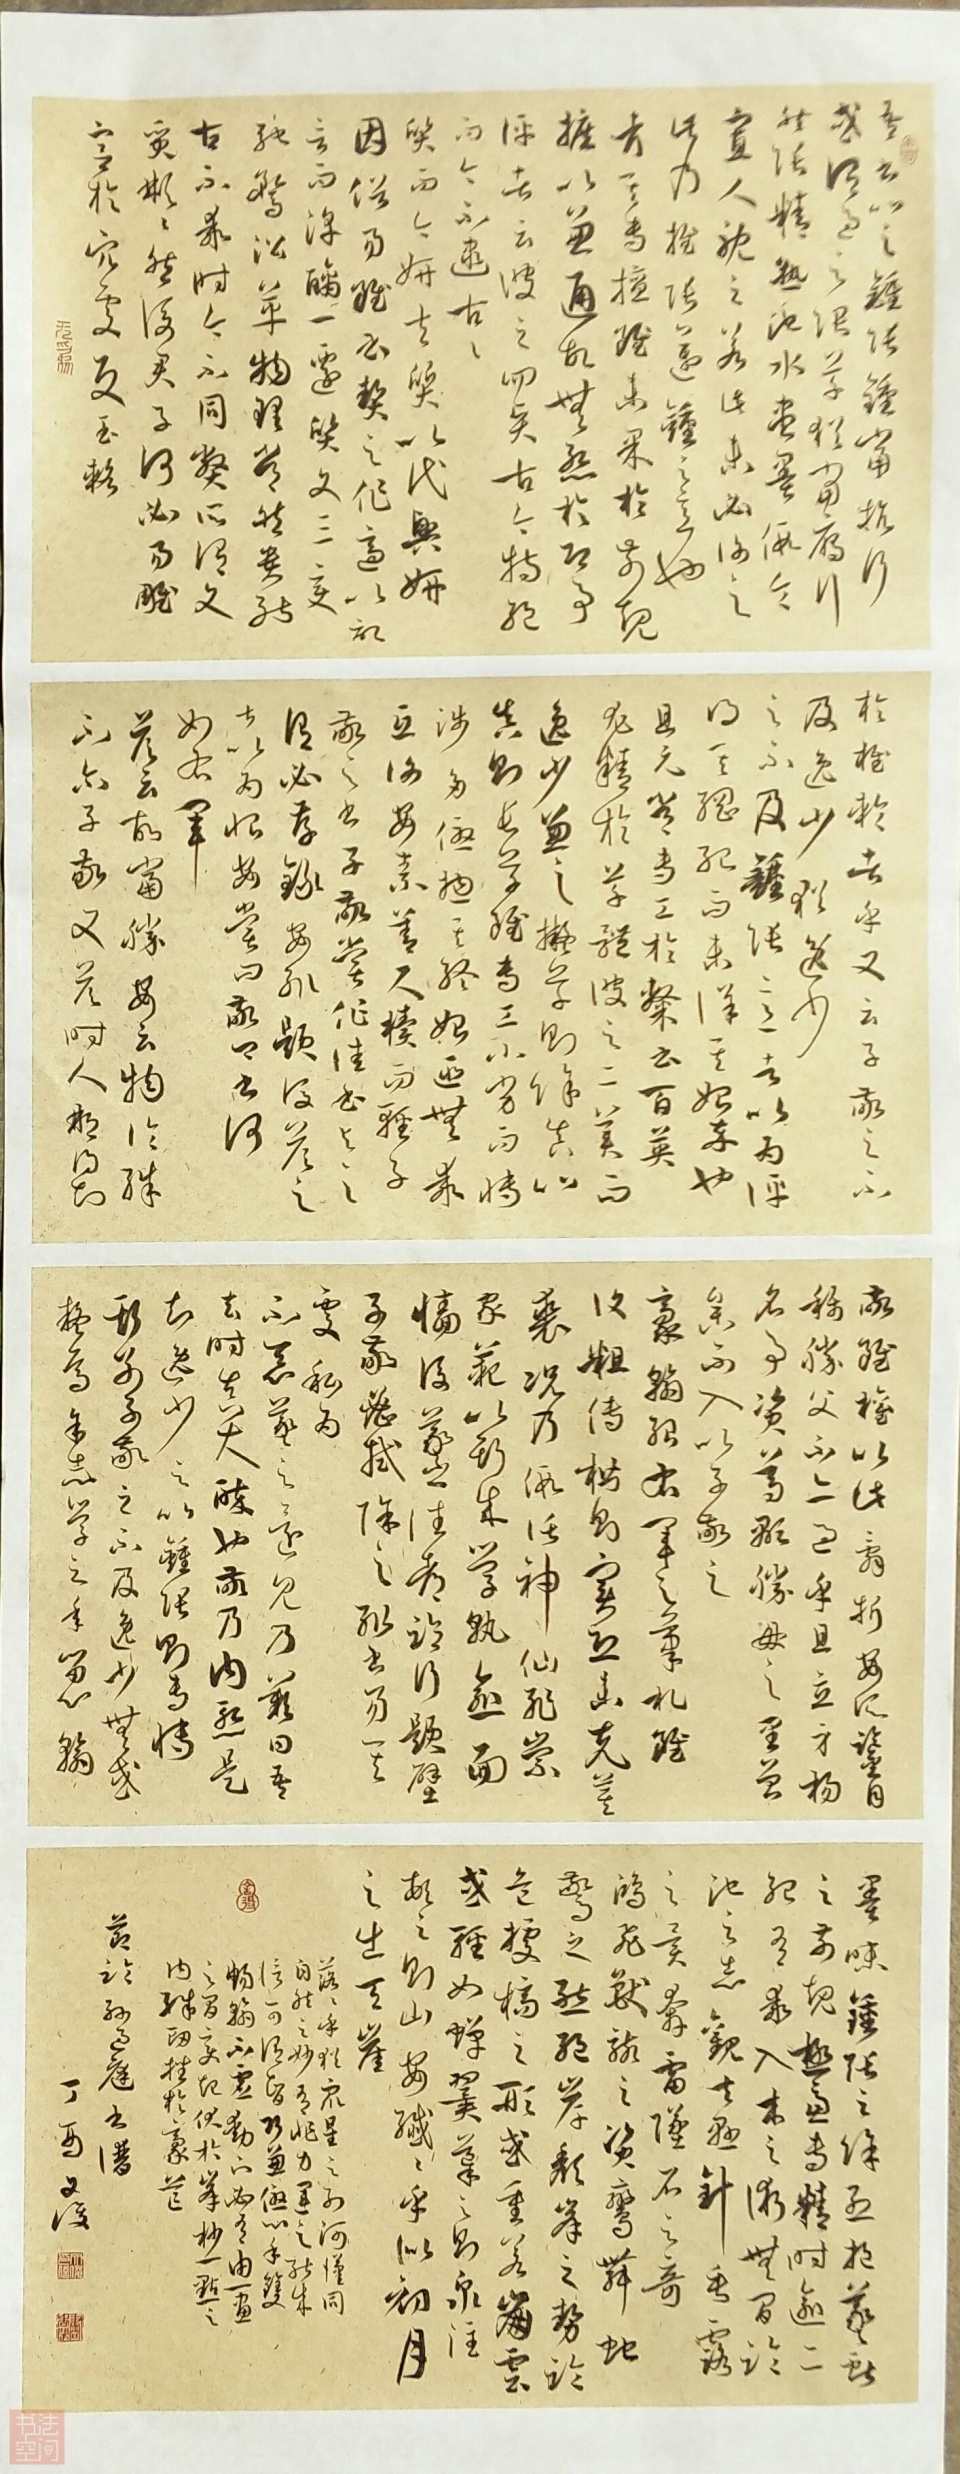 吾書比之鍾張鍾當抗行
或謂過之張草猶當鴈行
然張精熟池水盡墨假令
寡人耽之若此未必謝之
此乃推張邁鍾之意也
考其專擅雖未果於前規
摭以兼通故無慙於即事
評者云彼之四賢古今特絕
而今不逮古古
質而今妍夫質以代興妍
因俗易雖書契之作適以記
言而淳醨一遷質文三變
馳騖沿革物理常然貴能
古不乖時今不同弊所謂文
質彬彬然後君子何必易雕
宮於穴處反玉輅
於椎輪者乎又云子敬之不
及逸少猶逸少
之不及鍾張意者以為評
得其綱紀而未詳其始卒也
且元常專工於隸書百英
尤精於草體彼之二美而
逸少兼之擬草則餘真比
真則長草雖專工小劣而博
涉多優總其終始匪無乖
互謝安素善尺牘而輕子
敬之書子敬嘗作佳書與之
謂必存錄安輒題後答之
甚以為恨安嘗問敬卿書何
如右軍
答云故當勝安云物論殊
不爾子敬又答時人那得知
敬雖權以此辭折安所鑒自
稱勝父不亦過乎且立身揚
名事資尊顯勝母之里曾
參不入以子敬之
豪翰紹右軍之筆札雖
復粗傳楷則實恐未克箕
裘況乃假託神仙恥崇
家範以斯成學孰愈面
牆後羲之往都臨行題壁
子敬密拭除之輒書易其
處私為
不惡羲之還見乃歎曰吾
去時真大醉也敬乃內慙是
知逸少之比鍾張則專博
斯別子敬之不及逸少無或
疑焉余志學之年留心翰
墨味鍾張之餘烈挹羲獻
之前規極慮專精時逾二
紀有乖入木之術無間臨
池之志觀夫懸針垂露
之異奔雷墜石之奇
鴻飛獸駭之資鸞舞蛇
驚之態絕岸頹峯之勢臨
危據槁之形或重若崩雲
或輕如蟬翼導之則泉注
頓之則山安纖纖乎似初月
之出天崖
落落乎猶眾星之列河漢同
自然之妙有非力運之能成
信可謂智巧兼優心手雙
暢翰不虛動下必有由一畫
之間變起伏於峯杪一點之
內殊衄挫於豪芒
節臨孫過庭書譜
丁酉
书法空间